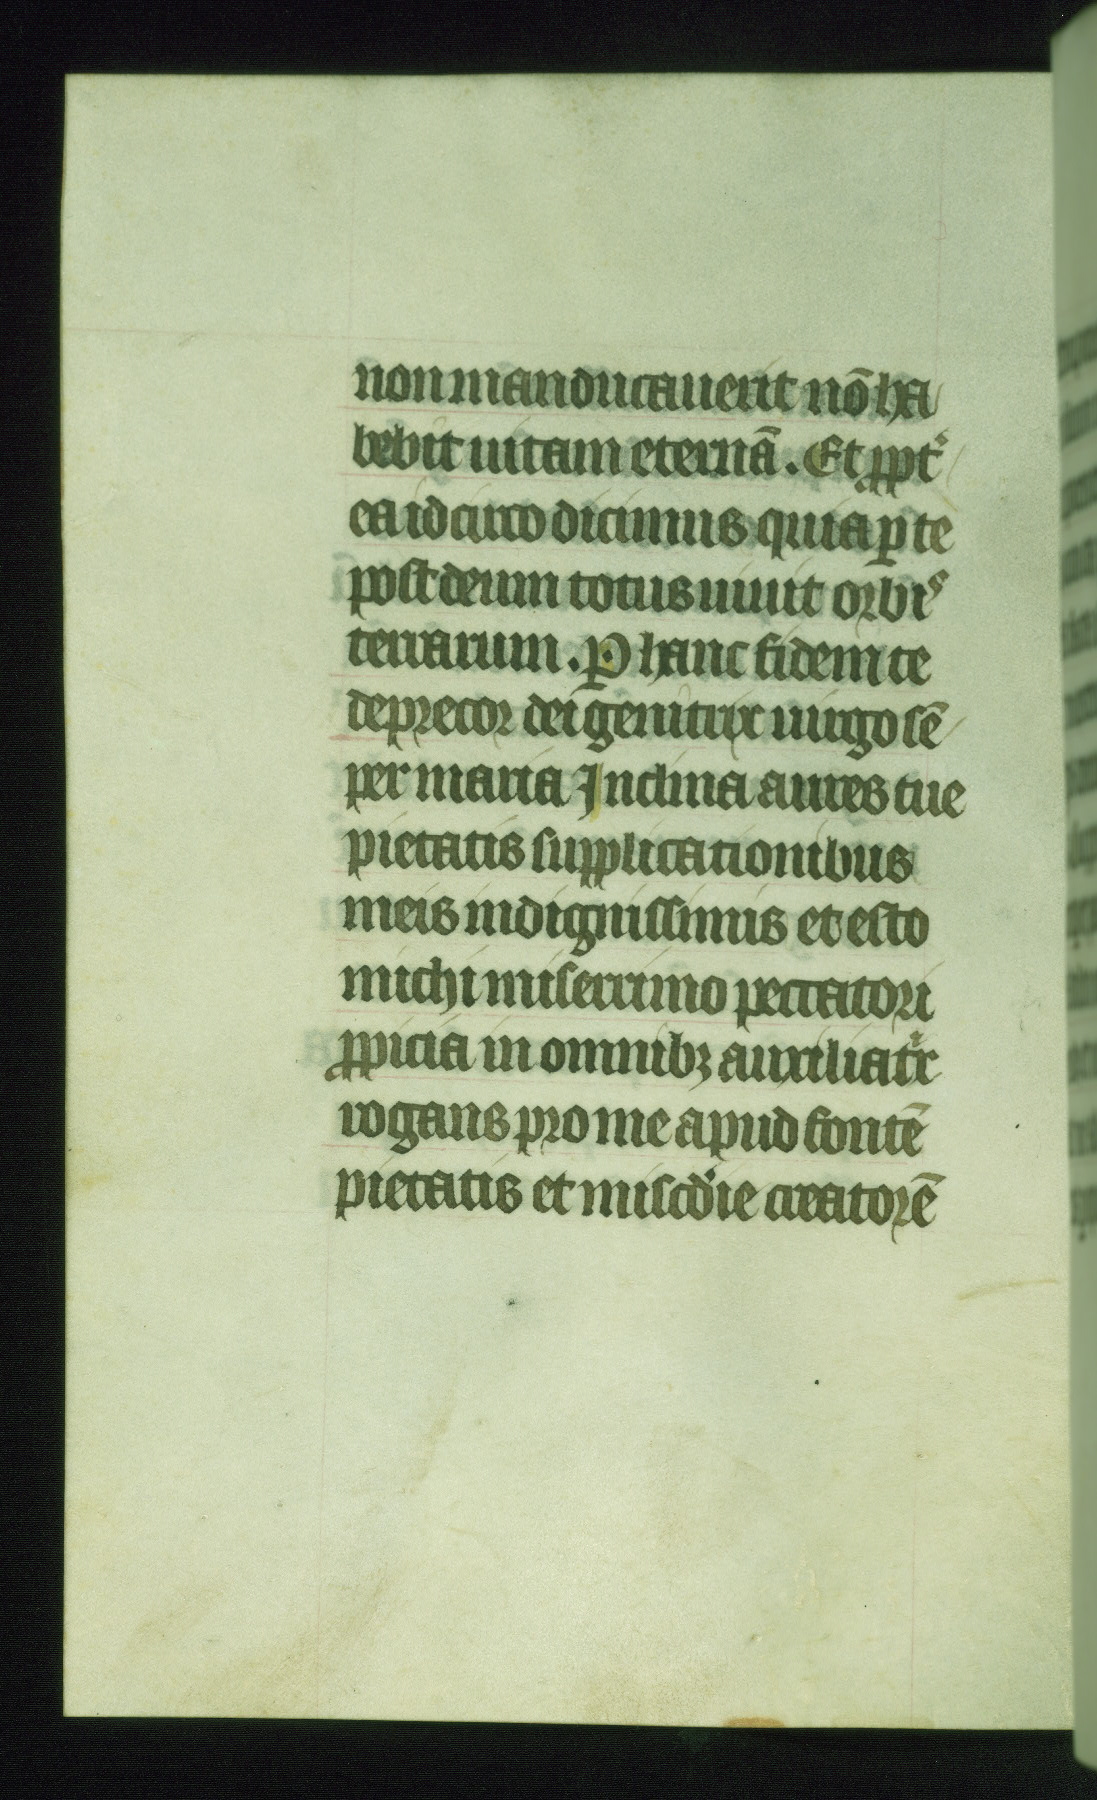 non manducauerit nō ha
bebit uitam eternā. Et ꝓpt᷒
ea idcirco dicimus quia ꝑ te
post deum totus uiuit orbis
terrarum. Ꝑ hanc fidem te
deprecor dei genitrix uirgo sē
per maria Inclina aures tue
pietatis supplicationibus
meis indignissimis et esto
michi miserrimo peccatori
ꝓpicia in omnibꝫ auxiliatͥx
rogans pro me apud fontē
pietatis et miscd'ie creatorē